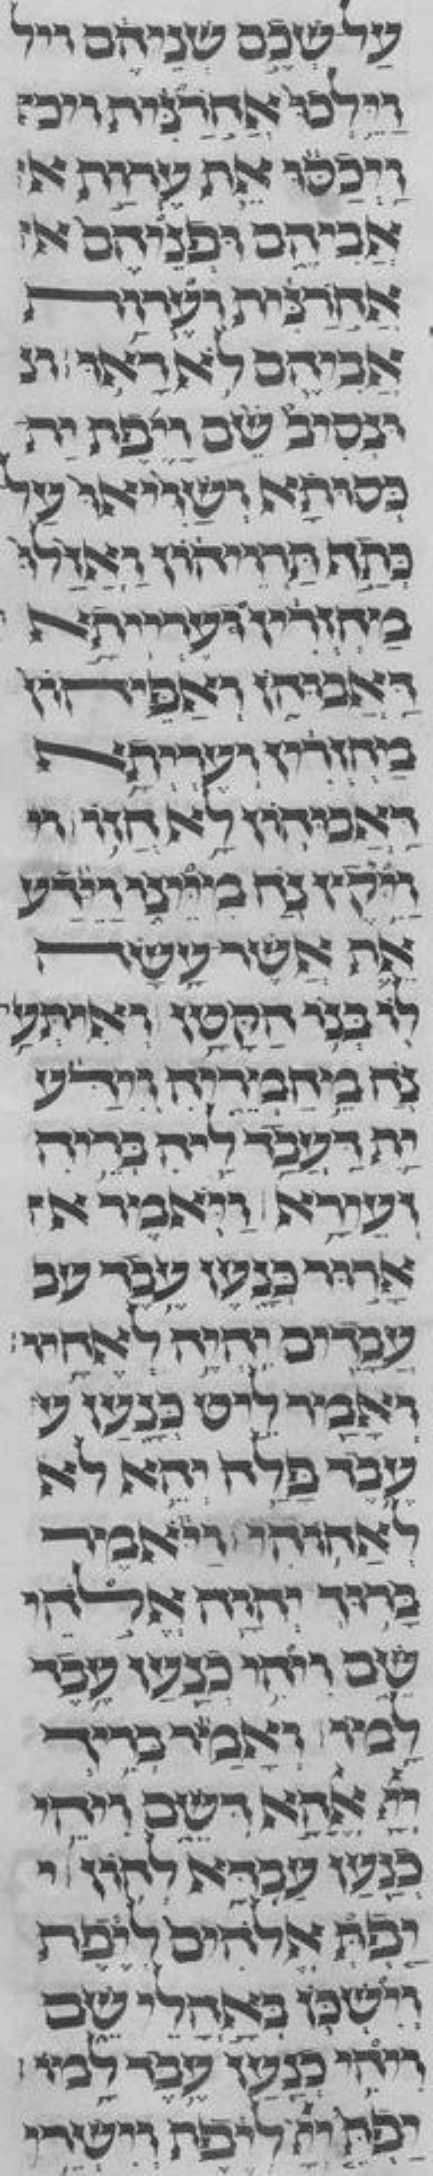 עַל שְׁכֶם שְׁנֵיהֶם ויל
וַיֵּלְכוּ אֲחֹרַנִּית ויכ
וַיְכַסּוּ אֵת עֶרְוַת א
אֲבִיהֶם וּפְנֵיהֶם א
אֲחֹרַנִּית וְעֶרְוַת
אֲבִיהֶם לֹא רָאוּ ונ
וּנְסֵיב שֵׁם וָיֶפֶת יַת
כְּסוּתָא וְשַׁוִּיאוּ עַל
כְּתַף תַּרְוֵיהוֹן וַאֲזַלוּ
מַחְזְרִין וְעֶרְיְיתָא
דַּאֲבוּהוֹן וְאַפֵּיהוֹן
מַחְזְרִין וְעֶרְיְתָא
דַּאֲבוּהוֹן לָא חֲזוֹ וי
וַיִּקֶץ נֹחַ מִיֵּינוֹ וַיֵּדַע
אֵת אֲשֶׁר עָשָׂה
לוֹ בְּנוֹ הַקָּטָן וְאִיתְּעַ
נֹחַ מֵיחַמְרֵיהּ וִידַע
יָת דַּעֲבַד לֵיהּ בְּרֵיהּ
זְעֵירָא וַיֹּאמֶר א
אָרוּר כְּנָעַן עֶבֶד עב
עֲבָדִים יִהְיֶה לְאֶחָיו
וַאֲמַר לִיט כְּנַעַן ע
עֲבֵד פָּלַח יְהֵא לא
לַאֲחוֹהִי וַיֹּאמֶר
בָּרוּךְ יְהוָה אֱלֹהֵי
שֵׁם וִיהִי כְנַעַן עֶבֶד
לָמוֹ וַאֲמַר בְּרִיךְ
יְיָ אֱלָהָא דְּשֵׁם וִיהֵי
כְנַעַן עַבְדָּא לְהוֹן י
יַפְתְּ אֱלֹהִים לְיֶפֶת
וְיִשְׁכֹּן בְּאָהֳלֵי שֵׁם
וִיהִי כְנַעַן עֶבֶד לָמוֹ
יַפְתֵּי יְיָ לְיֶפֶת וְיַשְׁרֵי